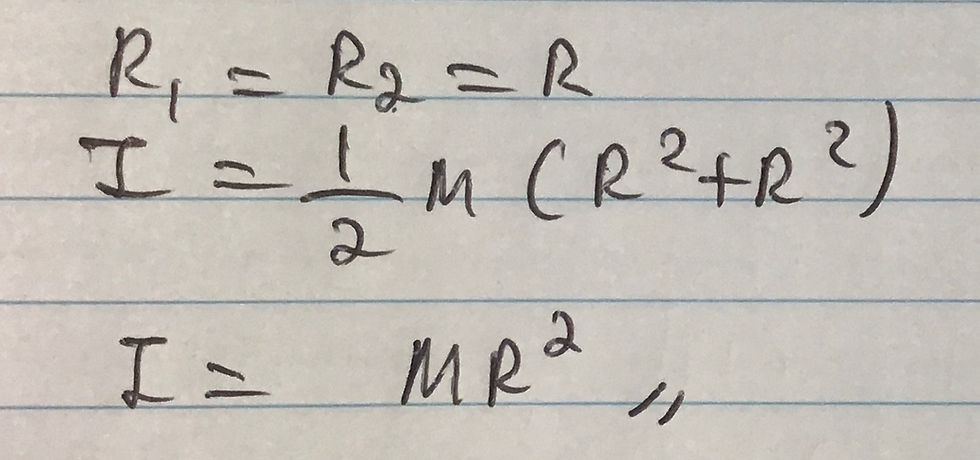 R₁ = R₂ = R
I = 1/2 M (R² + R²)
I = MR² „